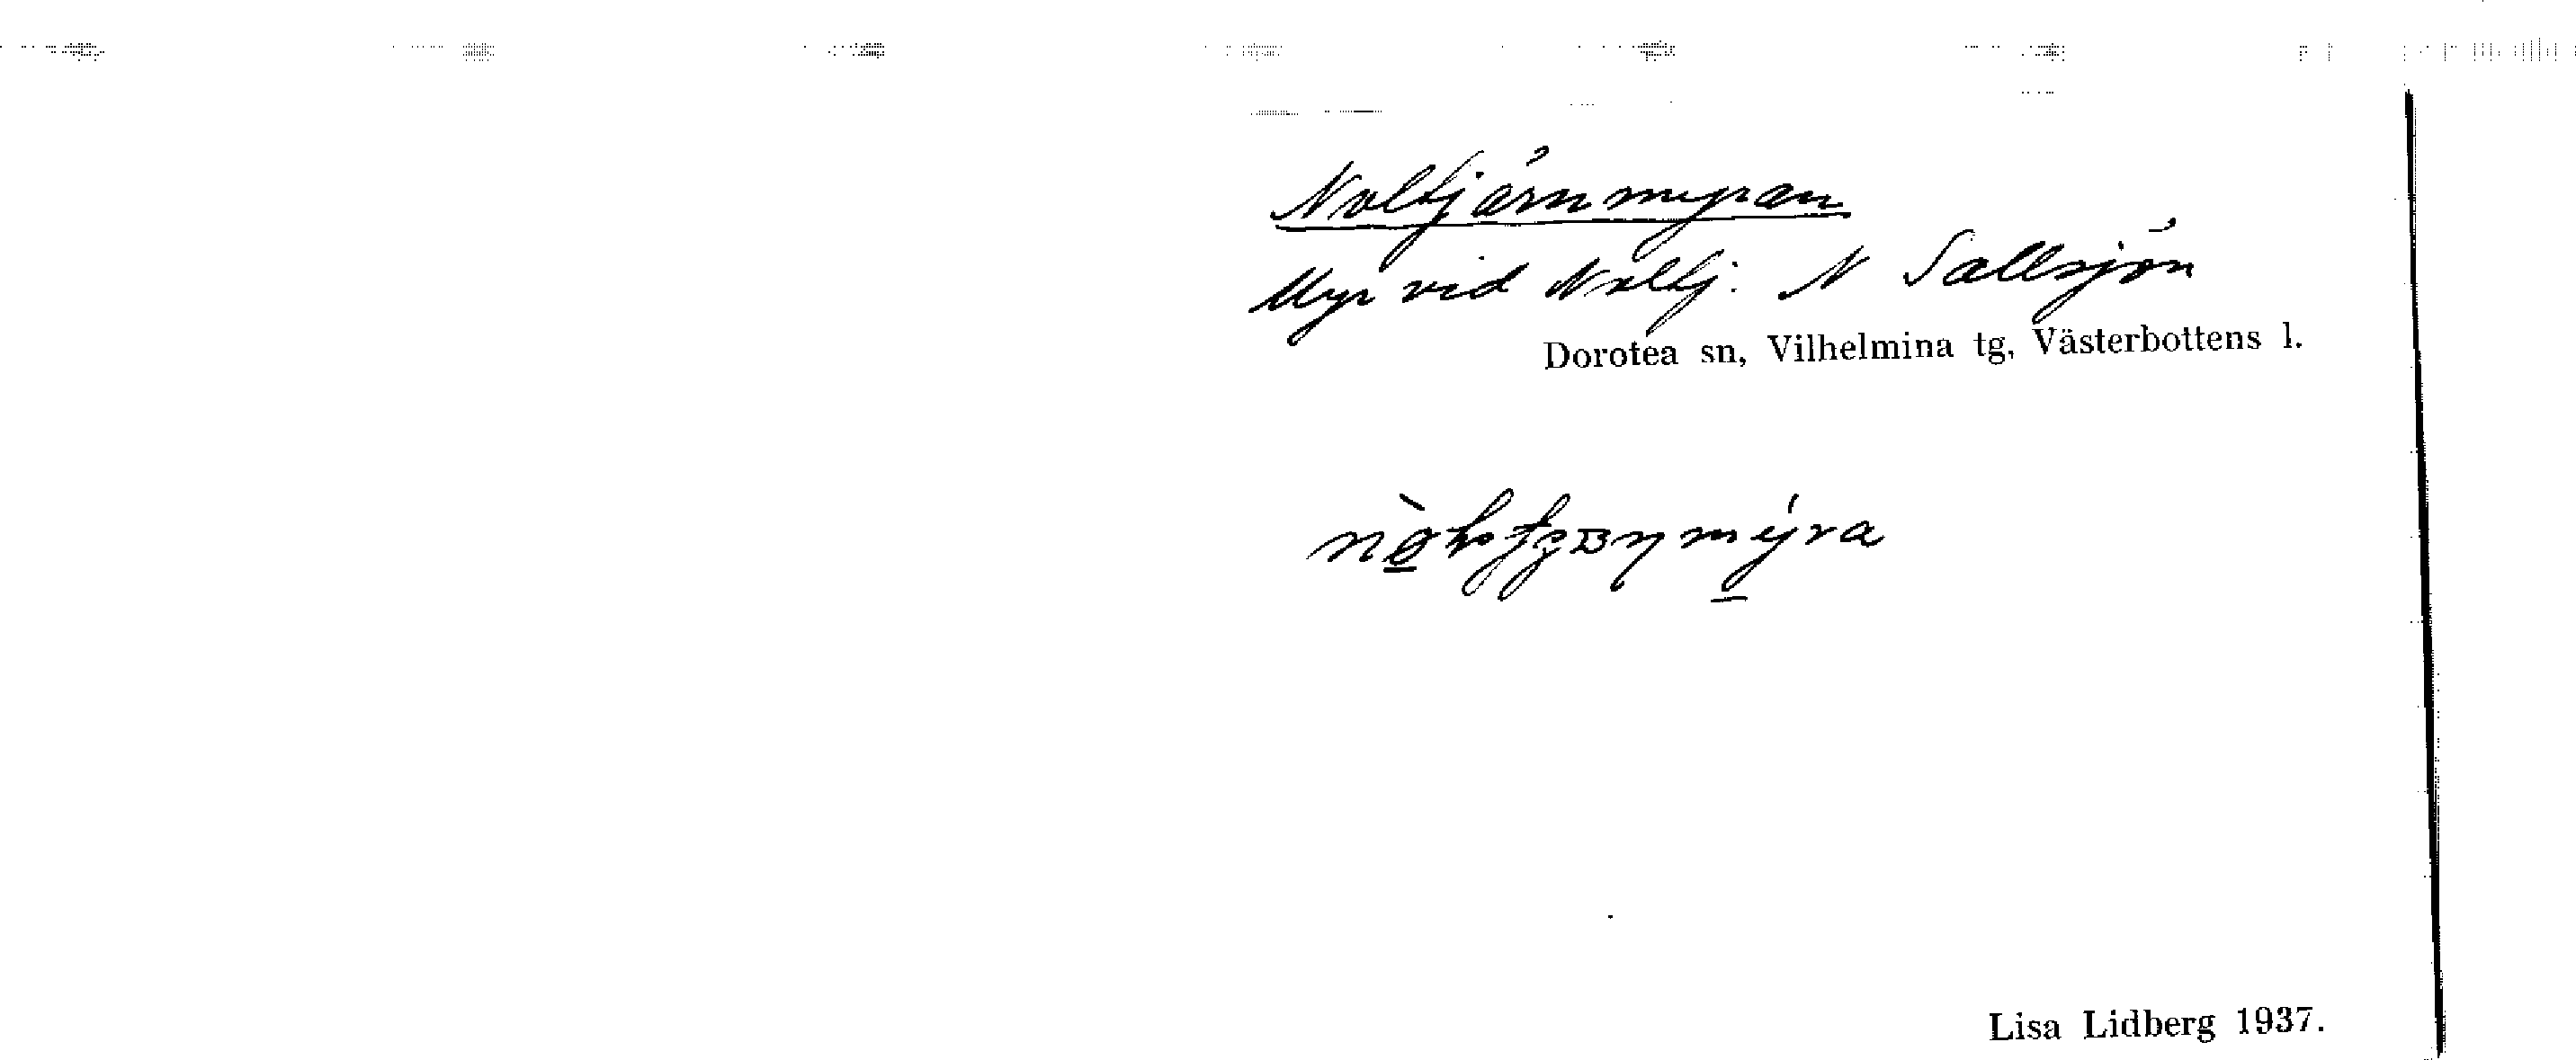 Noltjärnmyran
Myr vid Noltj. N Sallsjön
Dorotea sn, Vilhelmina tg, Västerbottens l.
Lisa Lidberg 1937.